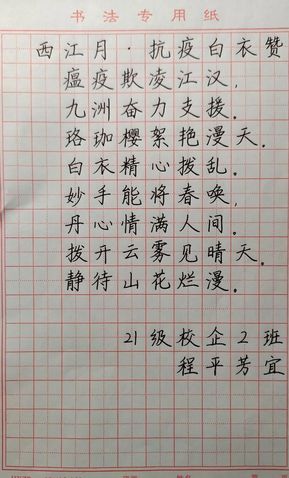 书法专用纸
西江月·抗疫白衣赞
瘟疫欺凌江汉，
九洲奋力支援。
珞珈樱絮艳漫天。
白衣精心拨乱。
妙手能将春唤，
丹心情满人间。
拨开云雾见晴天。
静待山花烂漫。
21级校企2班
程平芳宜